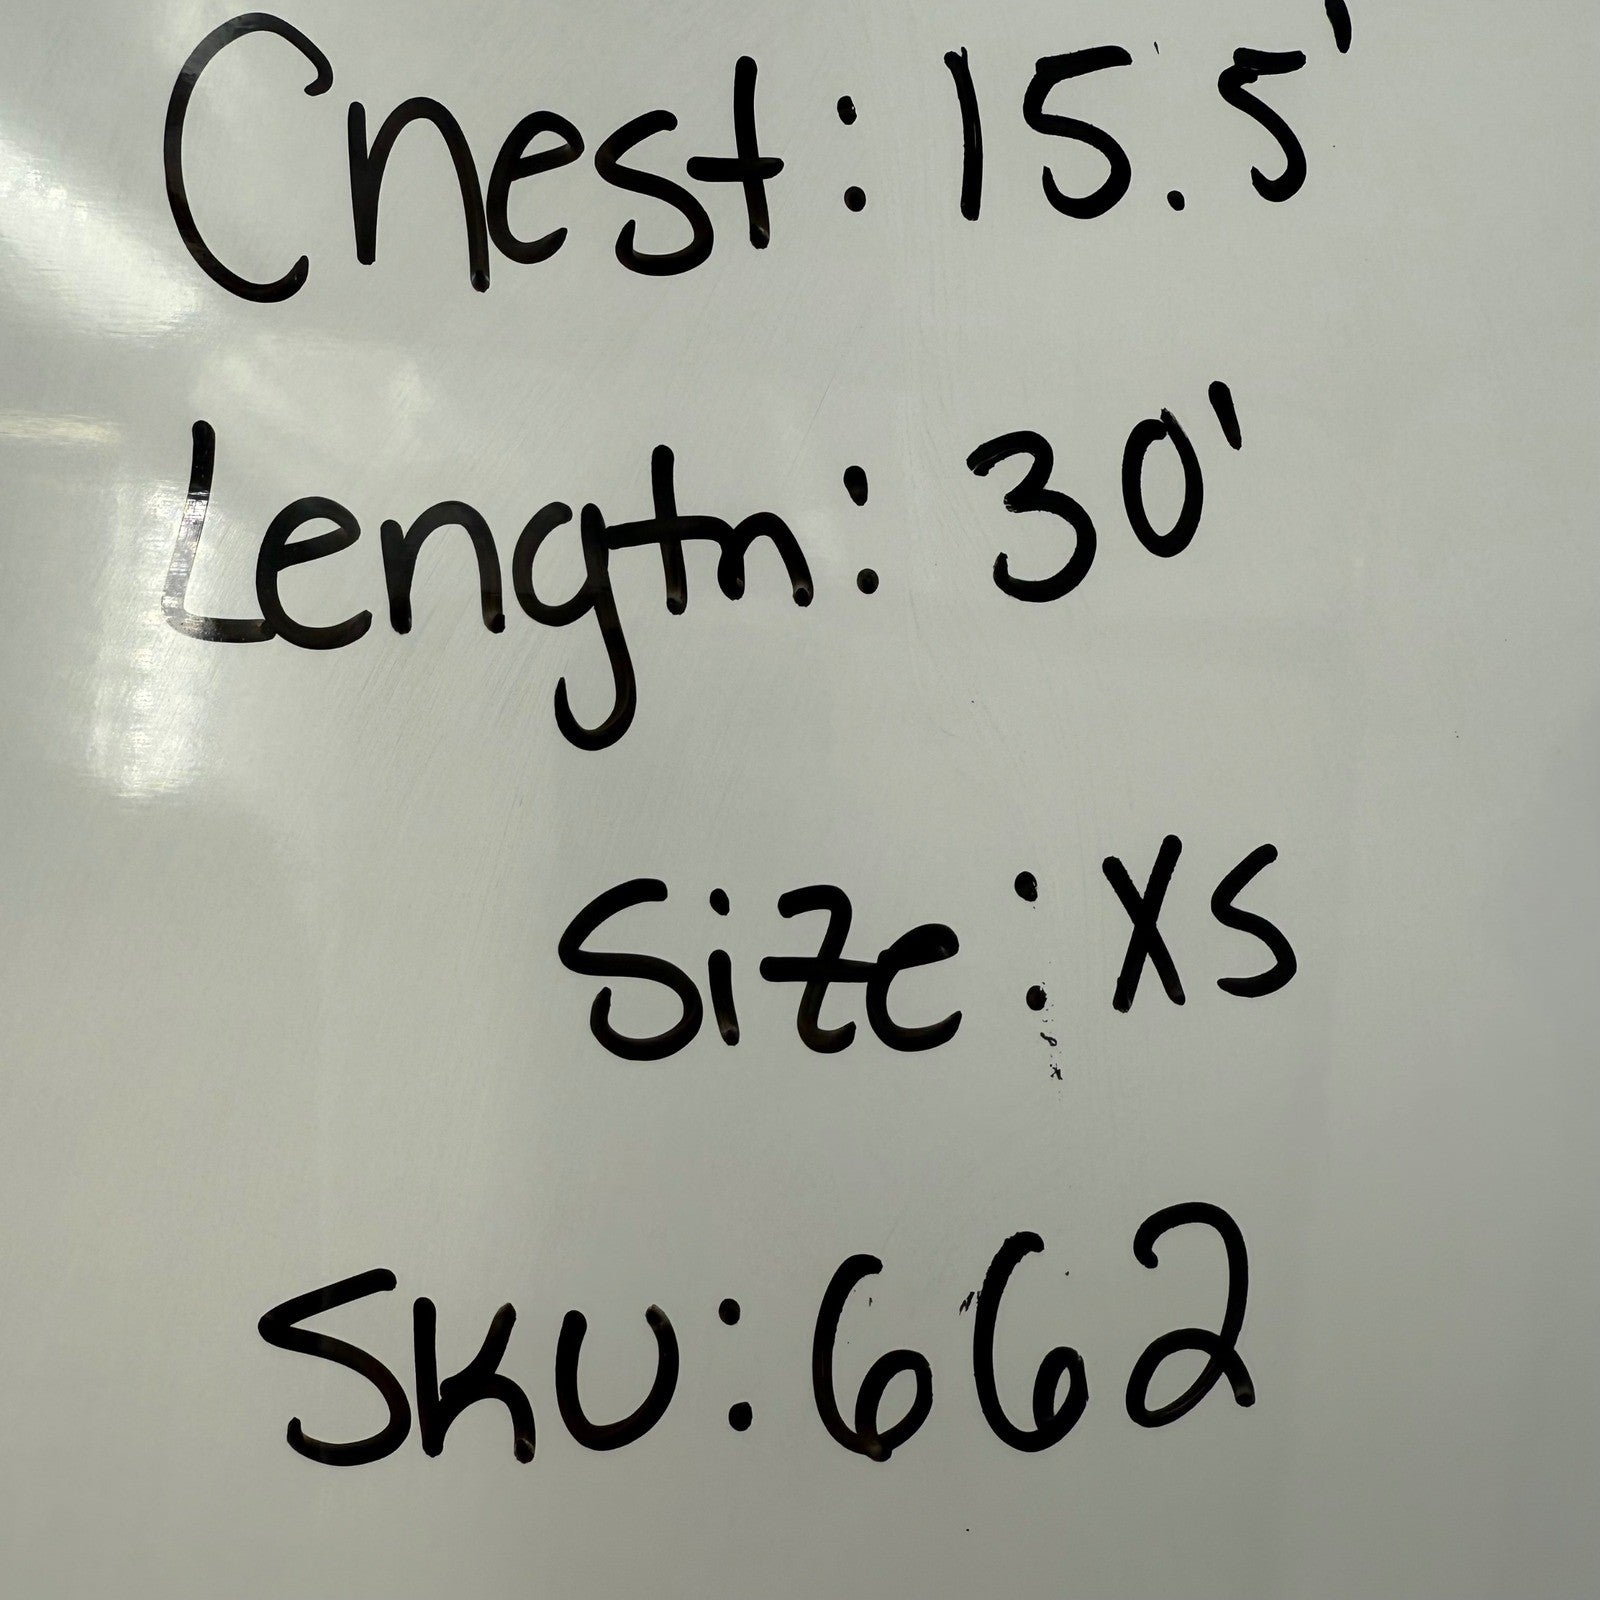 Chest: 15.5'
Length: 30'
Size: XS
SKU: 662